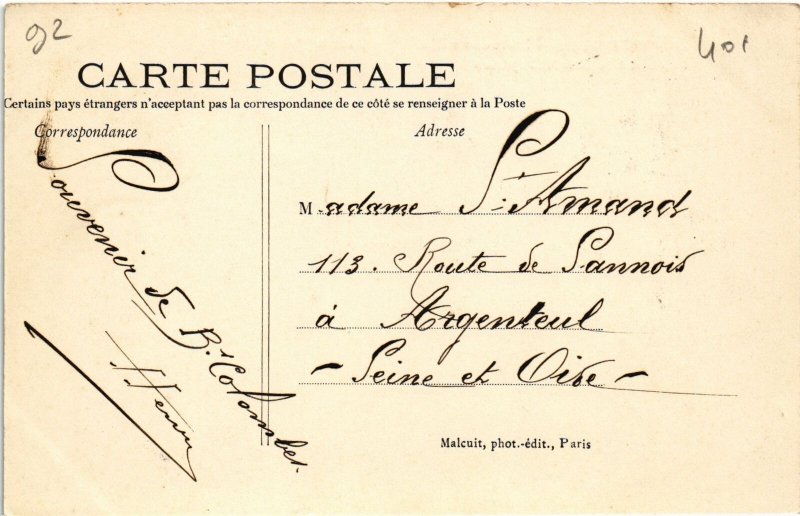 92
401
CARTE POSTALE
Certains pays étrangers n'acceptant pas la correspondance de ce côté se renseigner à la Poste
Correspondance
Adresse
Souvenir de Bs Colombes
Henri
Madame St Amand
113. Route de Sannois
à Argenteuil
- Seine et Oise -
Malcuit, phot.-édit., Paris